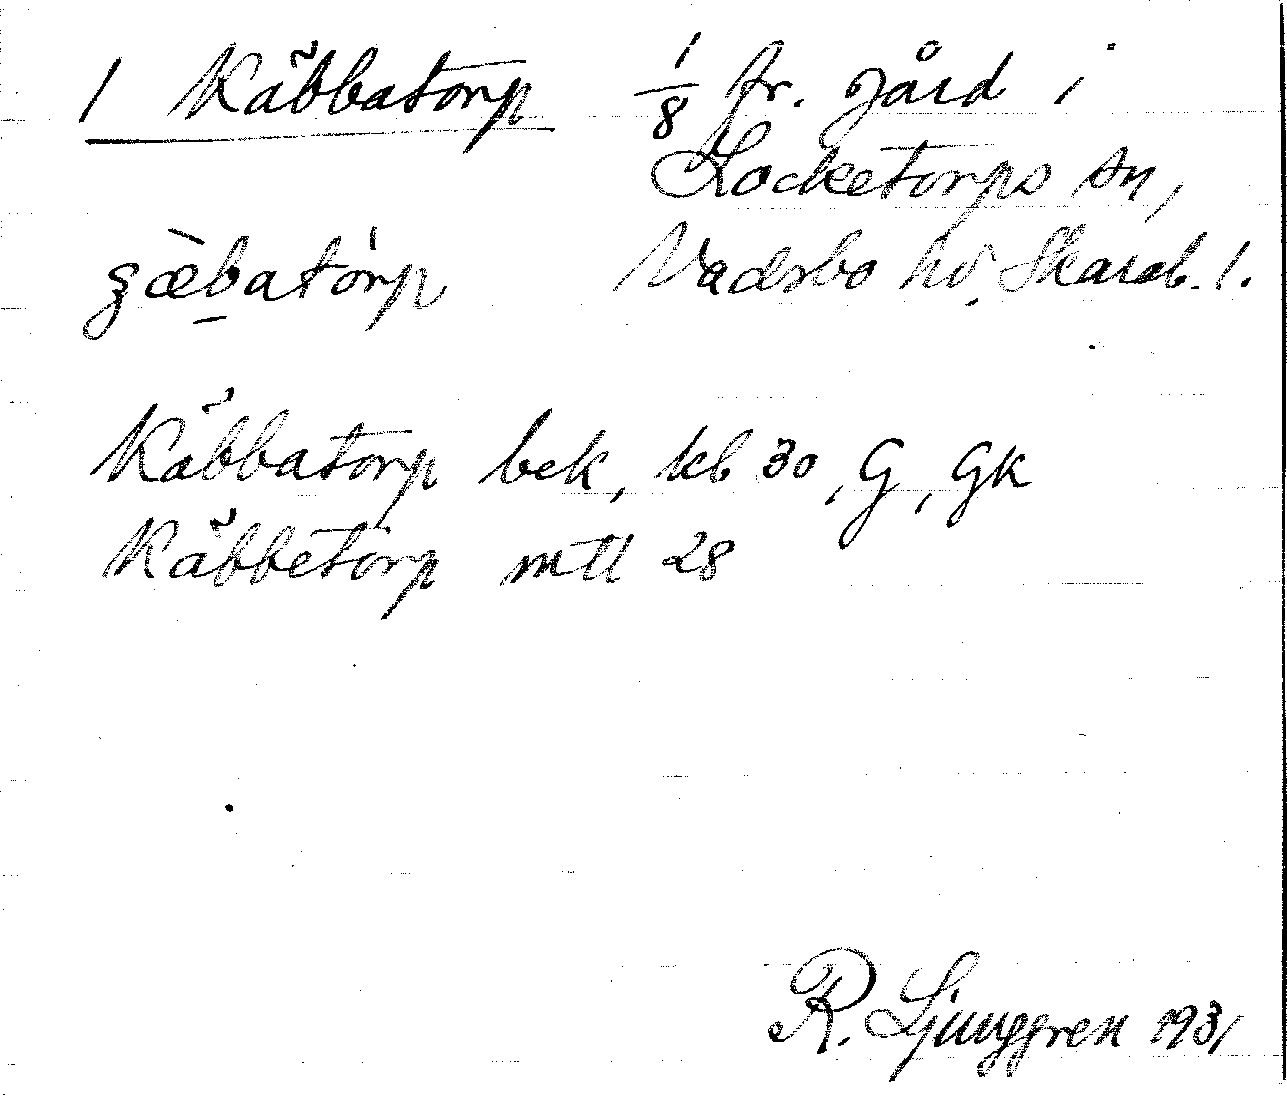 1 Käbbatorp 1/8 fr. gård i
Locketorps sn,
Vadsbo hd. Skarab. l.
Käbbatorp bek, kb 30, G, GK
Käbbetorp mtl 28
R. Ljunggren 1931